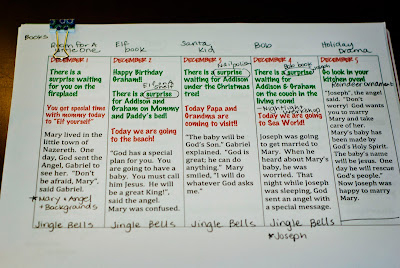 Books
Room For A
Little One
Elf
book
Santa
kid
Bob
Holiday
DECEMBER 1
There is a
surprise
waiting for
you on the
fireplace!
You get special time
with mommy today
to "Elf yourself!"
Mary lived in the
little town of
Nazareth. One
day, God sent the
Angel, Gabriel to
see her. "Don't
be afraid, Mary",
said Gabriel.
*Mary + Angel
+ Backgrounds
Jingle Bells
DECEMBER 2
Happy Birthday
Graham!!
There is a surprise
for Addison and
Graham on Mommy
and Daddy's bed!
Today we are going
to the beach!
"God has a special
plan for you. You
are going to have a
baby. You must call
him Jesus. He will
be a great King!",
said the angel.
Mary was confused.
Jingle Bells
DECEMBER 3
Nail polish
There is a surprise
waiting for Addison
under the
Christmas tree!
Today Papa and
Grandma are
coming to visit!!
"The baby will be
God's Son." Gabriel
explained. "God is
great; he can do
anything." Mary
smiled, "I will do
whatever God asks
me."
Jingle Bells
DECEMBER 4
Bob book
There is a surprise
waiting for
Addison & Graham
on the couch in the
living room!
Today we are going
to Sea World!!
Joseph was going
to get married to
Mary. When he
heard about Mary's
baby, he was
worried. That
night while Joseph
was sleeping, God
sent an angel with
a special message.
Jingle Bells
*Joseph
DECEMBER 5
Go look in your
kitchen oven!
Reindeer ornament
"Joseph", the angel
said. "Don't
worry! God wants
you to marry
Mary and take
care of her.
Mary's baby has
been made by
God's Holy Spirit.
The baby's name
will be Jesus. One
day he will rescue
God's people."
Now Joseph was
happy to marry
Mary.
Jingle Bells